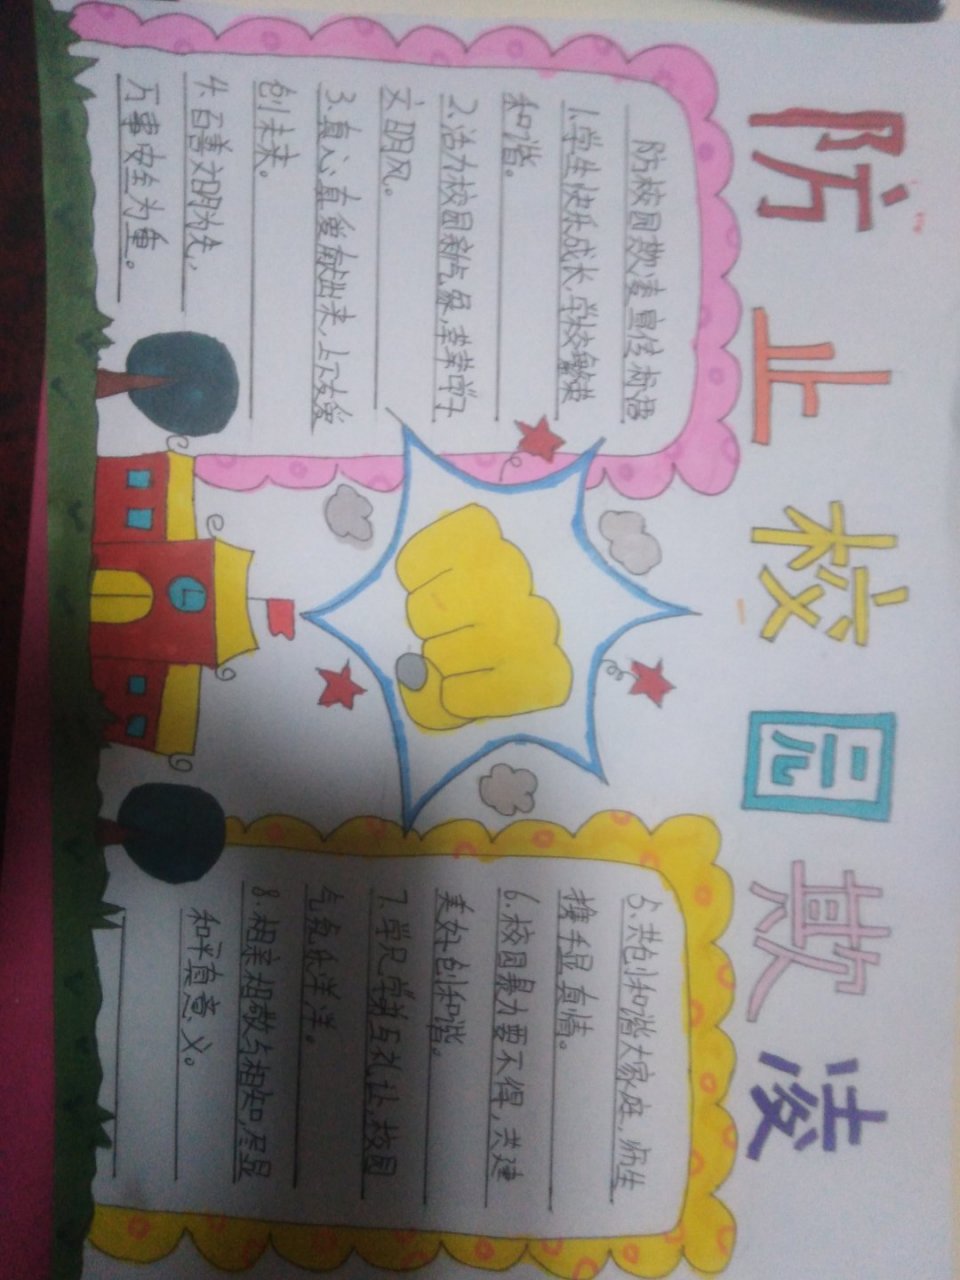 防止校园欺凌
防校园欺凌宣传标语
1.学生快乐成长,学校繁荣
和谐。
2.活力校园新气象,莘莘学子
文明风。
3.真心真爱献出来,上下友爱
创未来。
4.百善文明为先,
万事安全为重。
5.共创和谐大家庭,师生
携手显真情。
6.校园暴力要不得,共建
美好创和谐。
7.学兄学弟互礼让,校园
气氛乐洋洋。
8.相亲相敬与相知,尽显
和平真意义。